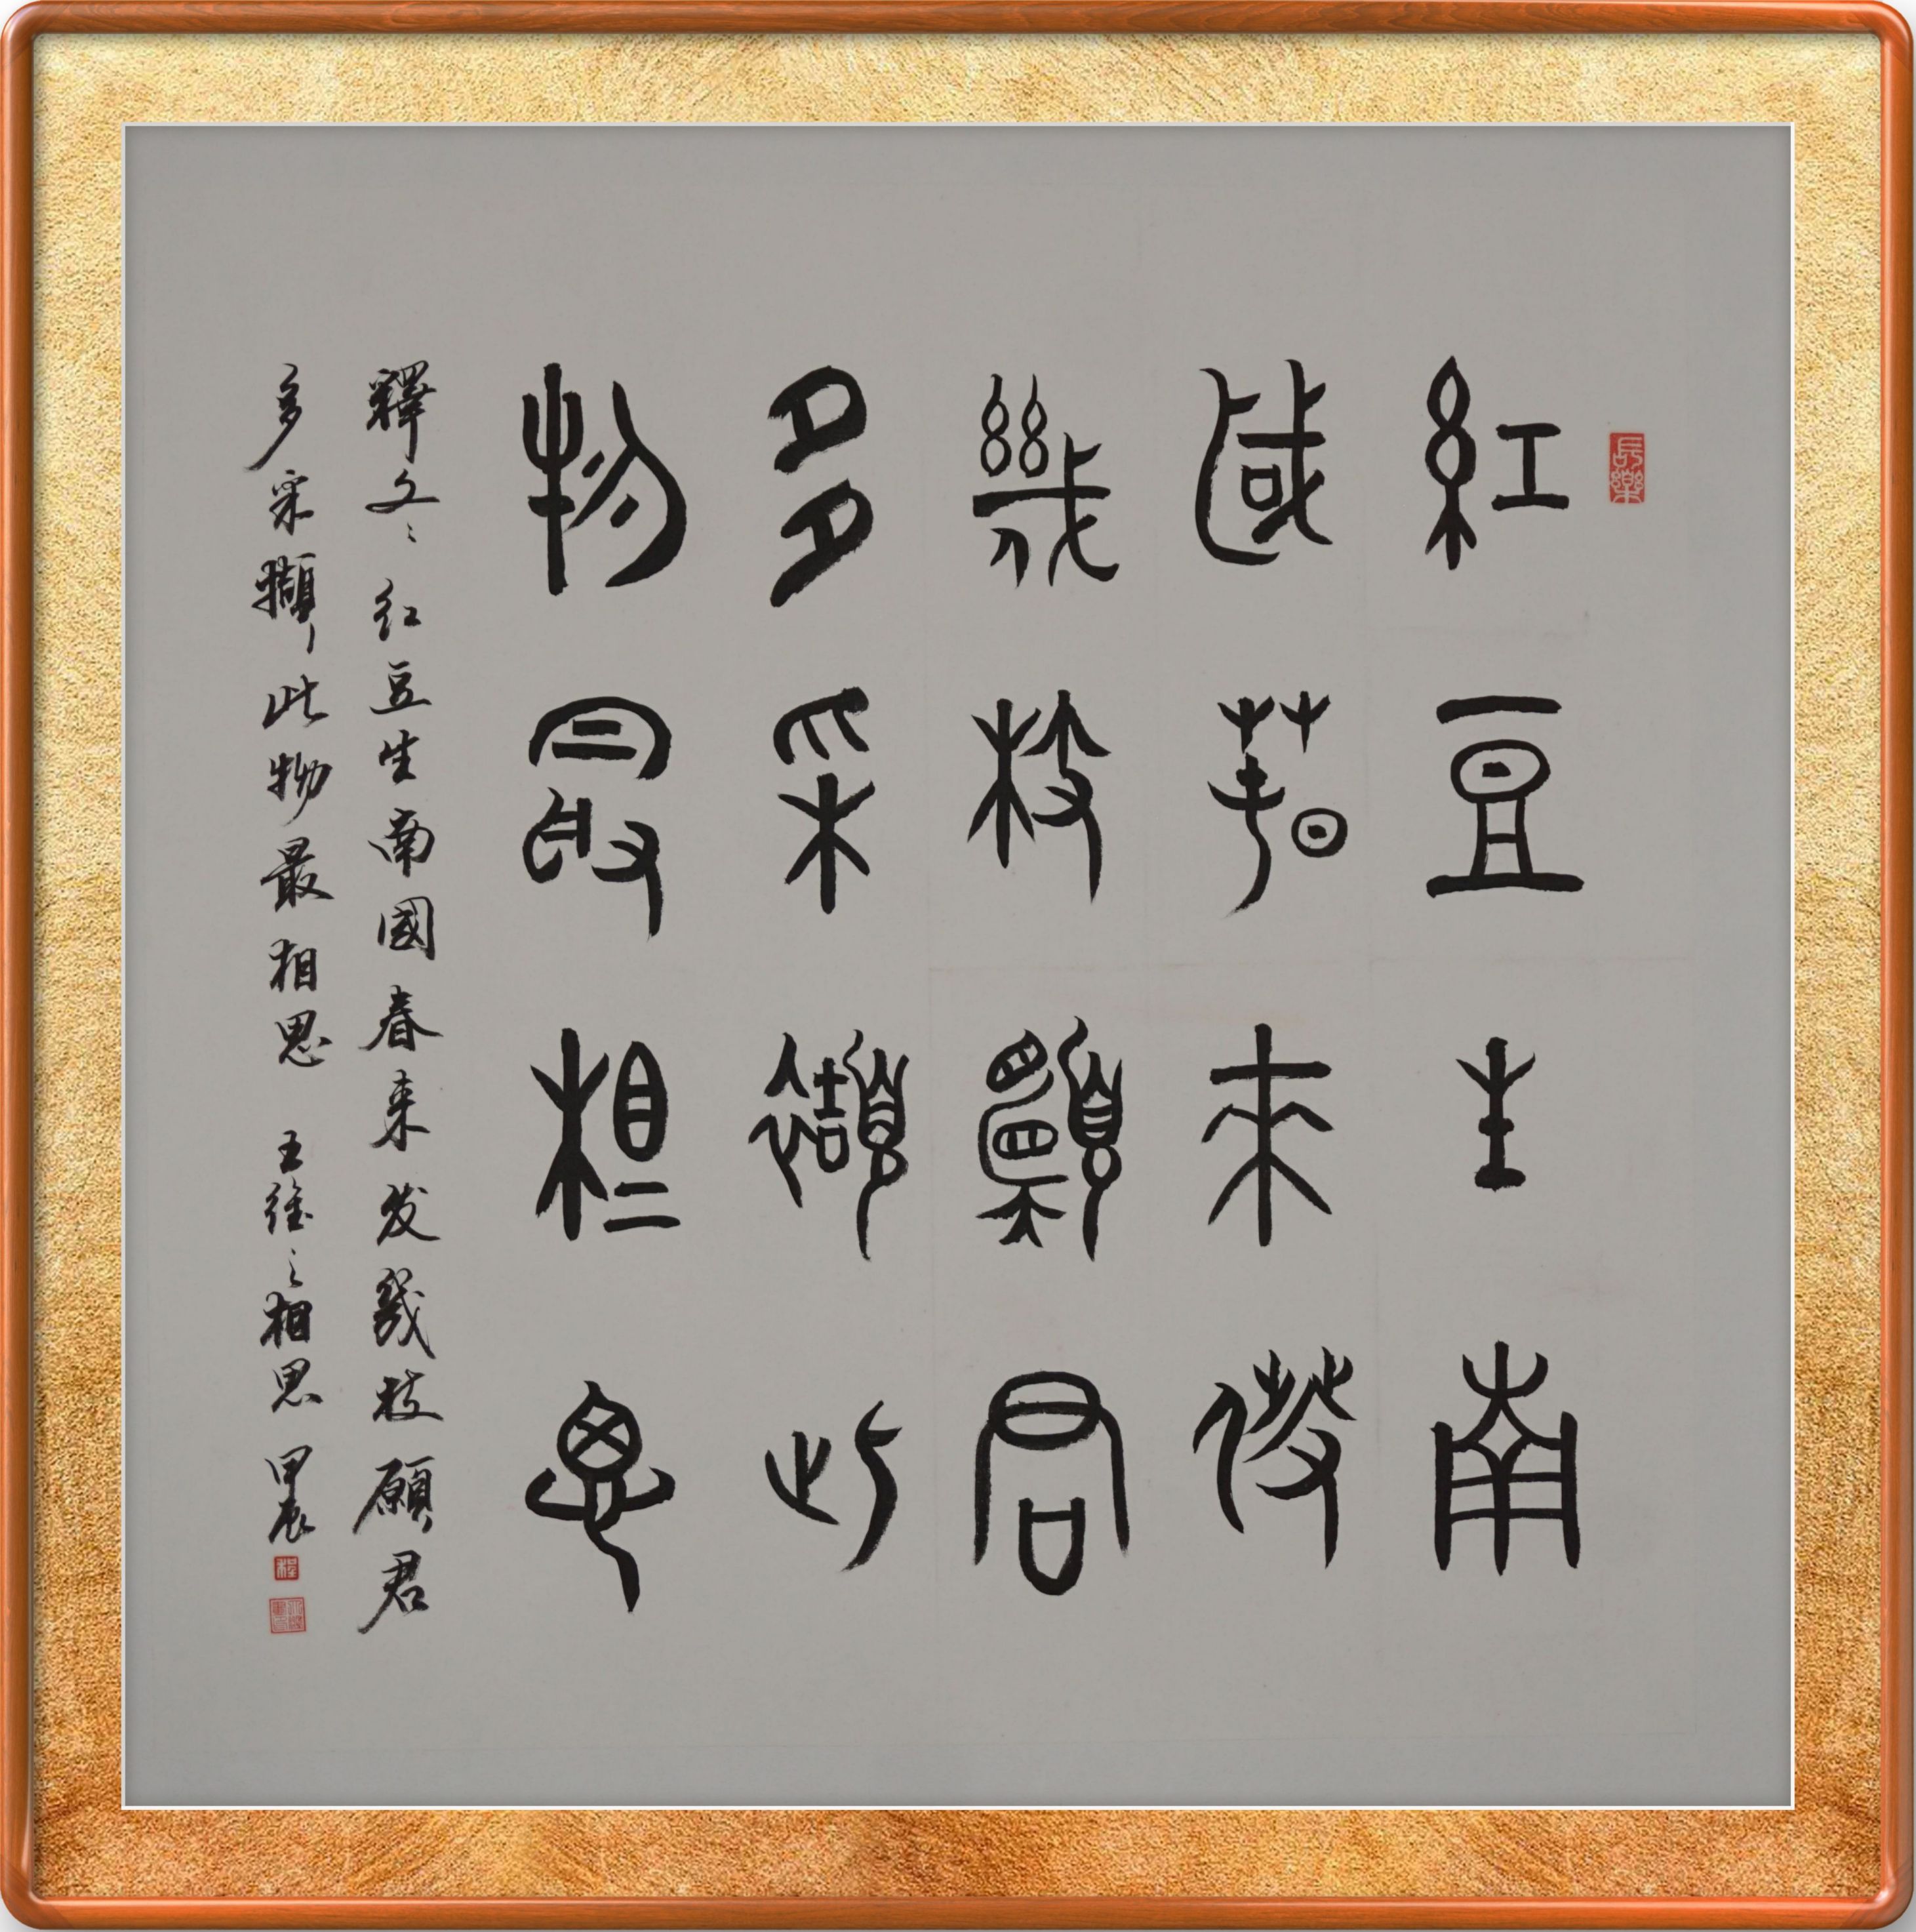 長樂
紅豆生南
國春來發
幾枝願君
多采擷此
物最相思
釋文：红豆生南國春来发幾枝願君
多采擷此物最相思 王維之相思 甲辰
程